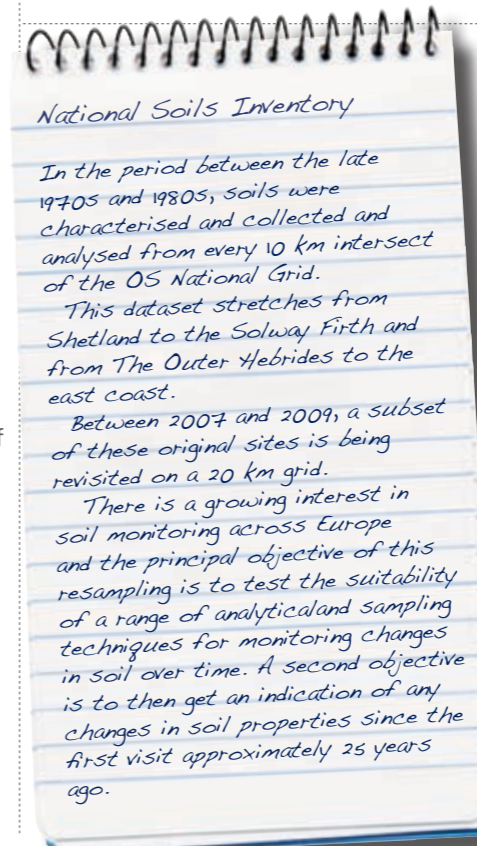 National Soils Inventory
In the period between the late
1970s and 1980s, soils were
characterised and collected and
analysed from every 10 km intersect
of the OS National Grid.
This dataset stretches from
Shetland to the Solway Firth and
from The Outer Hebrides to the
east coast.
Between 2007 and 2009, a subset
of these original sites is being
revisited on a 20 km grid.
There is a growing interest in
soil monitoring across Europe
and the principal objective of this
resampling is to test the suitability
of a range of analyticaland sampling
techniques for monitoring changes
in soil over time. A second objective
is to then get an indication of any
changes in soil properties since the
first visit approximately 25 years
ago.